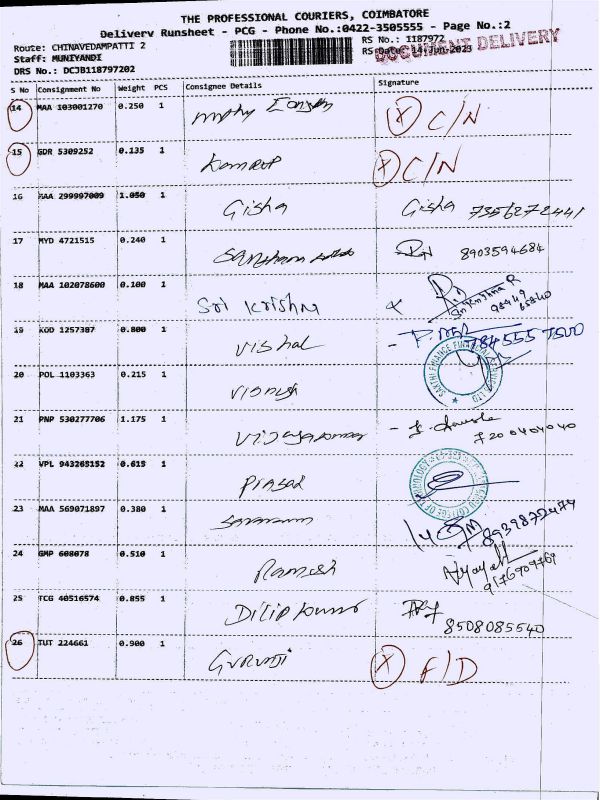 THE PROFESSIONAL COURIERS, COIMBATORE
Delivery Runsheet - PCG - Phone No.:0422-3505555 - Page No.:2
Route: CHINAVEDAMPATTI 2
RS No.: 1187972
Staff: MUNIYANDI
RS Date: 14-Jun-2023
DOCUMENT DELIVERY
DRS No.: DCJB118797202
S No Consignment No Weight PCS Consignee Details Signature
14 MAA 103001270 0.250 1 (X) C/N
15 GDR 5309252 0.135 1 Kamrup (X) C/N
16 MAA 299997009 1.050 1 Gisha Gisha 7356272441
17 MYD 4721515 0.240 1 8903594684
18 MAA 102078600 0.100 1 Sri Krishna
19 KOD 1257387 0.800 1 Vishal
SAKTHI FINANCE FINANCIAL SERVICES LTD
20 POL 1103363 0.215 1
21 PNP 530277706 1.175 1 Vijayakumar 7200404040
22 VPL 943265152 0.615 1 Prasad
23 MAA 569071897 0.380 1 8939872474
24 GMP 608078 0.510 1 Ramesh 9176909769
25 TCG 40516574 0.855 1 Dilip kumar 8508085540
26 TUT 224661 0.900 1 Guruji (X) F/D